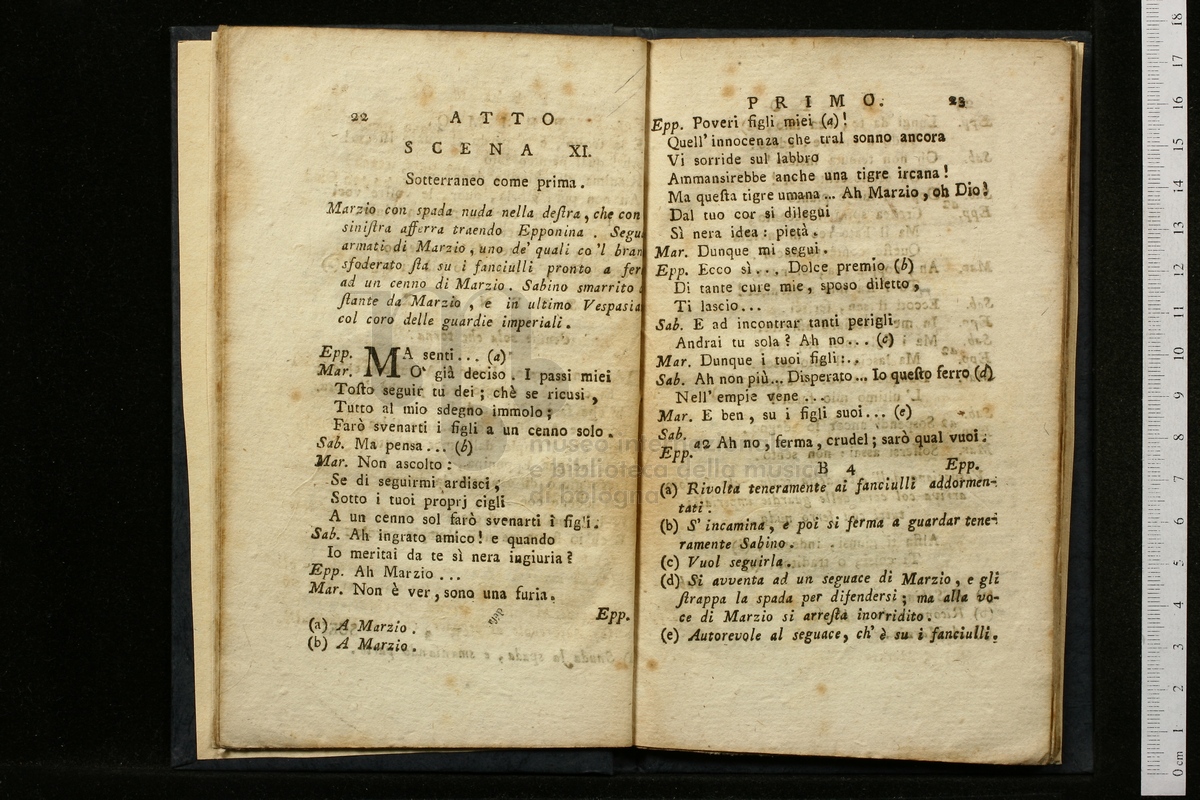 22 ATTO
SCENA XI.
Sotterraneo come prima.
Marzio con spada nuda nella deſtra, che con
siniſtra afferra traendo Epponina. Segu
armati di Marzio, uno de' quali co 'l bran
sfoderato ſta su i fanciulli pronto a fer
ad un cenno di Marzio. Sabino smarrito
ſtante da Marzio, e in ultimo Vespasia
col coro delle guardie imperiali.
Epp. MA senti... (a)
Mar. O' già deciso. I passi miei
Toſto seguir tu dei; chè se ricusi,
Tutto al mio sdegno immolo;
Farò svenarti i figli a un cenno solo.
Sab. Ma pensa... (b)
Mar. Non ascolto:
Se di seguirmi ardisci,
Sotto i tuoi proprj cigli
A un cenno sol farò svenarti i figli.
Sab. Ah ingrato amico! e quando
Io meritai da te sì nera ingiuria?
Epp. Ah Marzio...
Mar. Non è ver, sono una furia.
Epp.
(a) A Marzio.
(b) A Marzio.
PRIMO. 23
Epp. Poveri figli miei (a)!
Quell' innocenza che tral sonno ancora
Vi sorride sul labbro
Ammansirebbe anche una tigre ircana!
Ma queſta tigre umana... Ah Marzio, oh Dio!
Dal tuo cor si dilegui
Sì nera idea: pietà.
Mar. Dunque mi segui.
Epp. Ecco sì... Dolce premio (b)
Di tante cure mie, sposo diletto,
Ti lascio...
Sab. E ad incontrar tanti perigli
Andrai tu sola? Ah no... (c)
Mar. Dunque i tuoi figli...
Sab. Ah non più... Disperato... Io queſto ferro (d)
Nell' empie vene...
Mar. E ben, su i figli suoi... (e)
Sab.
Epp. a2 Ah no, ferma, crudel; sarò qual vuoi.
B 4 Epp.
(a) Rivolta teneramente ai fanciulli addormen-
tati.
(b) S' incamina, e poi si ferma a guardar tene-
ramente Sabino.
(c) Vuol seguirla.
(d) Si avventa ad un seguace di Marzio, e gli
ſtrappa la spada per difendersi; ma alla vo-
ce di Marzio si arreſta inorridito.
(e) Autorevole al seguace, ch' è su i fanciulli.
museo inter
e biblioteca della musica
di bologna
0 cm 1 2 3 4 5 6 7 8 9 10 11 12 13 14 15 16 17 18